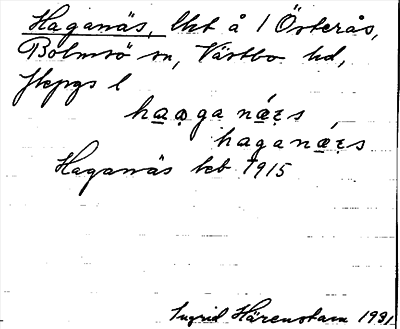 Haganäs, lht å 1 Österås,
Bolmsö sn, Västbo hd,
Jkpgs l
haaganǽ̣s
haganǽs
Haganäs hct 1915
Ingrid Härenstam 1931